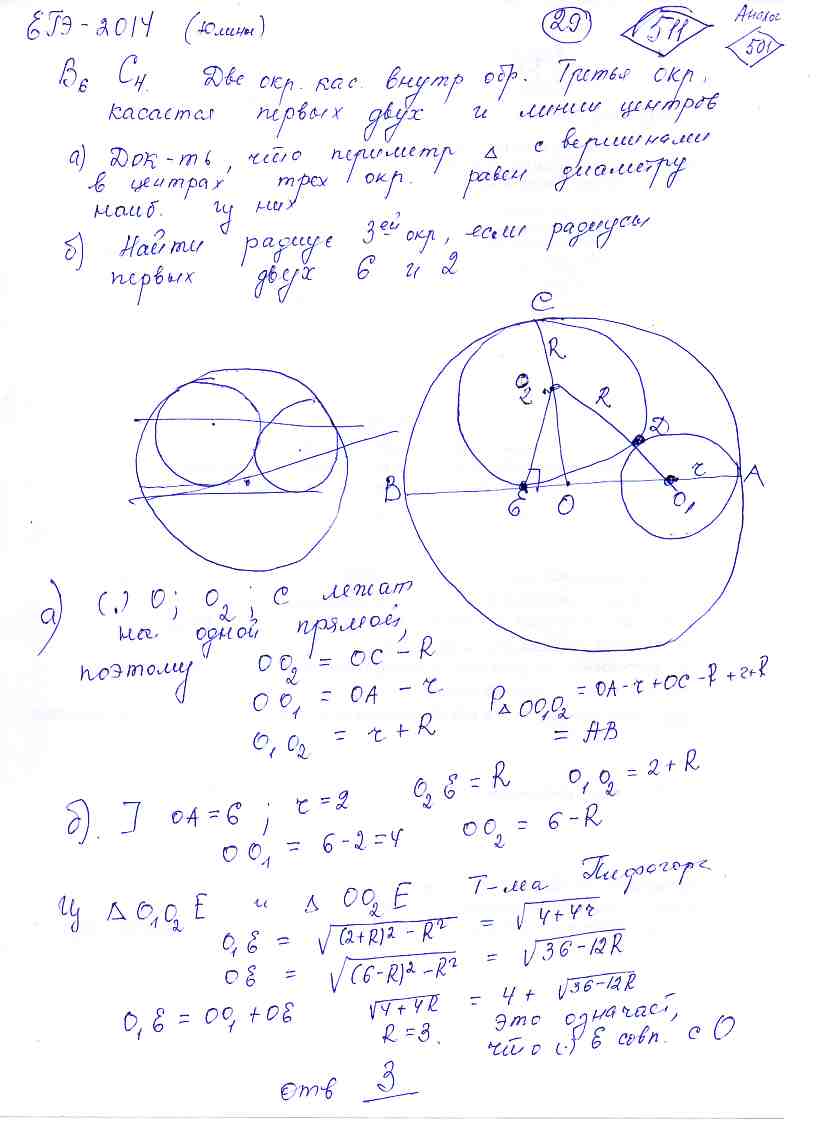 ЕГЭ-2014 (Юлины) 29 511 Аналог 501
В6 С4. Две окр. кас. внутр обр. Третья окр.
касается первых двух и линии центров
а) Док-ть, что периметр Δ с вершинами
в центрах трех окр. равен диаметру
наиб. из них
б) Найти радиус 3ей окр, если радиусы
первых двух 6 и 2
C
R
O2
R
D
r
B
E
O
O1
A
а) (.) O; O2; C лежат
на одной прямой,
поэтому OO2 = OC - R
OO1 = OA - r
O1O2 = r + R
PΔOO1O2 = OA-r+OC-R+r+R
= AB
б). ] OA=6; r=2 O2E=R O1O2=2+R
OO1 = 6-2=4 OO2 = 6-R
Из Δ O1O2E и Δ OO2E Т-ма Пифагора
O1E = √(2+R)²-R² = √4+4r
OE = √(6-R)²-R² = √36-12R
O1E = OO1+OE √4+4R = 4+√36-12R
R=3. Это означает,
что (.) E совп. с O
Отв 3